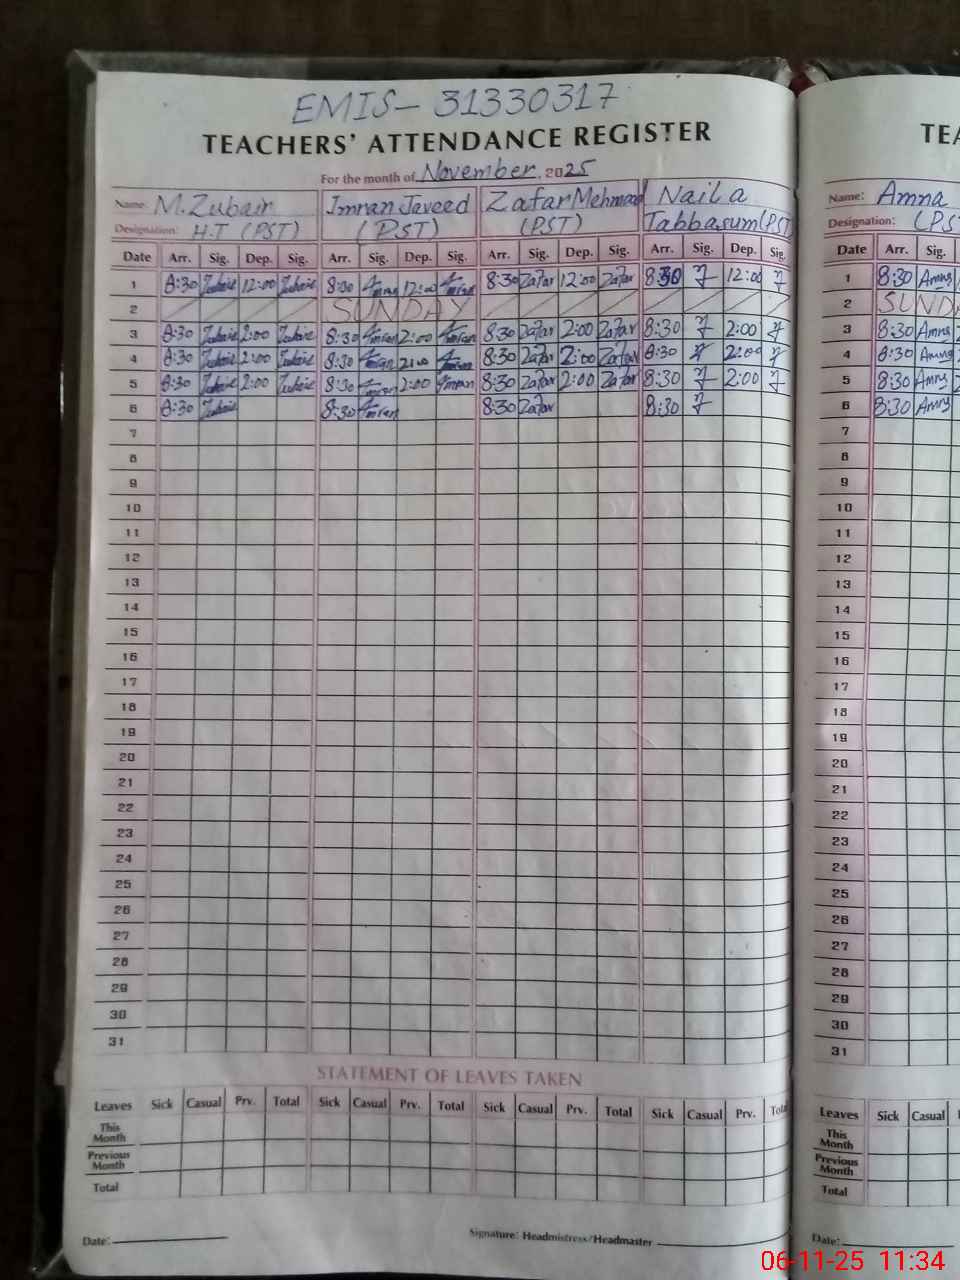 EMIS- 31330317
TEACHERS' ATTENDANCE REGISTER
For the month of November, 2025
Name: M.Zubair Imran Javeed Zafar Mehmood Naila
Designation: H.T (PST) (PST) (PST) Tabbasum(PST)
Date Arr. Sig. Dep. Sig. Arr. Sig. Dep. Sig. Arr. Sig. Dep. Sig. Arr. Sig. Dep. Sig.
1 8:30 Zubair 12:00 Zubair 8:30 Imran 12:00 Imran 8:30 Zafar 12:00 Zafar 8:30 12:00
2 SUNDAY
3 8:30 Zubair 2:00 Zubair 8:30 Imran 2:00 Imran 8:30 Zafar 2:00 Zafar 8:30 2:00
4 8:30 Zubair 2:00 Zubair 8:30 Imran 2:00 Imran 8:30 Zafar 2:00 Zafar 8:30 2:00
5 8:30 Zubair 2:00 Zubair 8:30 Imran 2:00 Imran 8:30 Zafar 2:00 Zafar 8:30 2:00
6 8:30 Zubair 8:30 Imran 8:30 Zafar 8:30
7
8
9
10
11
12
13
14
15
16
17
18
19
20
21
22
23
24
25
26
27
28
29
30
31
STATEMENT OF LEAVES TAKEN
Leaves Sick Casual Prv. Total Sick Casual Prv. Total Sick Casual Prv. Total Sick Casual Prv. Total
This
Month
Previous
Month
Total
Date:
Signature: Headmistress/Headmaster
TEA
Name: Amna
Designation: (PS
Date Arr. Sig.
1 8:30 Amna
2 SUNDA
3 8:30 Amna
4 8:30 Amna
5 8:30 Amna
6 8:30 Amna
7
8
9
10
11
12
13
14
15
16
17
18
19
20
21
22
23
24
25
26
27
28
29
30
31
Leaves Sick Casual
This
Month
Previous
Month
Total
Date:
06-11-25 11:34